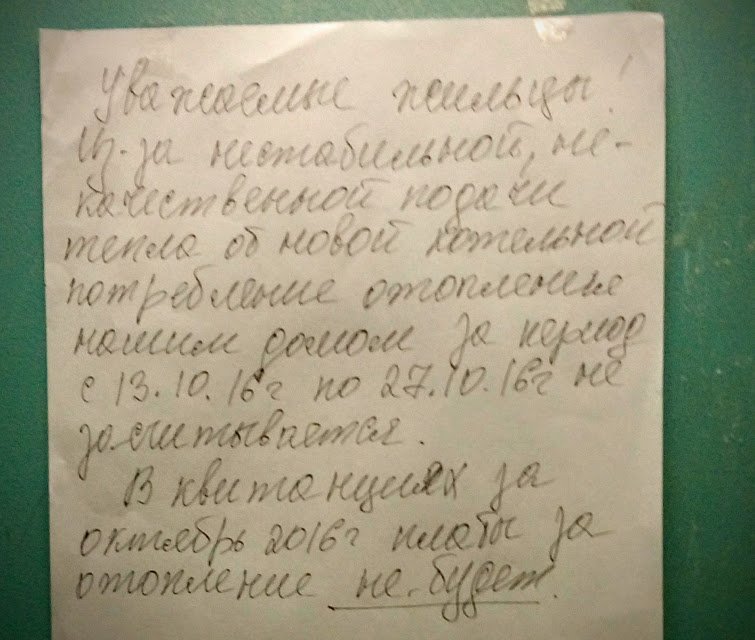 Уважаемые жильцы!
Из-за нестабильной, не-
качественной подачи
тепла от новой котельной
потребление отопления
нашим домом за период
с 13.10.16г по 27.10.16г не
засчитывается.
В квитанциях за
октябрь 2016г платы за
отопление не будет.